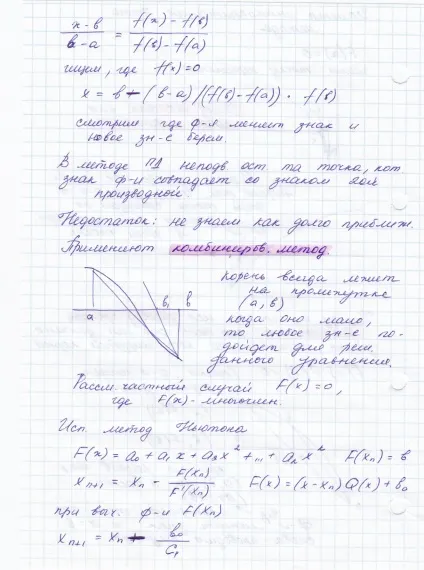 x-в / в-a = f(x)-f(в) / f(в)-f(a)
ищем, где f(x)=0
x = в - (в-a)/(f(в)-f(a)) · f(в)
смотрим где ф-я меняет знак и
новое зн-е берем
В методе ПД неподв ост та точка, кот
знак ф-и совпадает со знаком 2ой
производной
Недостаток: не знаем как долго приближ.
Применяют комбиниров. метод.
корень всегда лежит
на промежутке
(a, в)
когда оно мало,
то любое зн-е по-
дойдет для реш.
данного уравнения.
a в₁ в
Рассм. частный случай F(x)=0,
где F(x) - многочлен.
Исп. метод Ньютона
F(x) = a₀ + a₁x + a₂x² + ... + aₙx^k F(xₙ) = в
xₙ₊₁ = xₙ - F(xₙ) / F'(xₙ) F(x) = (x-xₙ)Q(x) + в₀
при выч. ф-и F(xₙ)
xₙ₊₁ = xₙ - в₀ / c₁